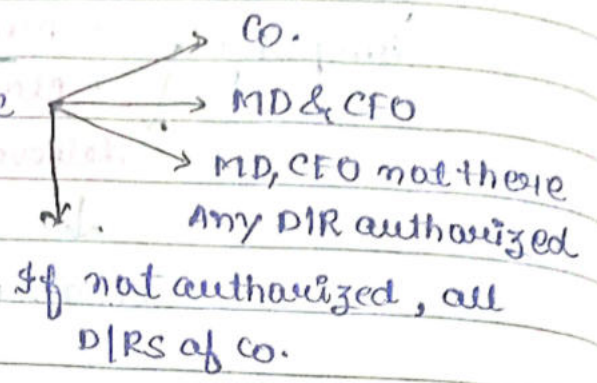 Co.
MD & CFO
MD, CFO not there
Any DIR authorized
If not authorized, all
DIRS of co.